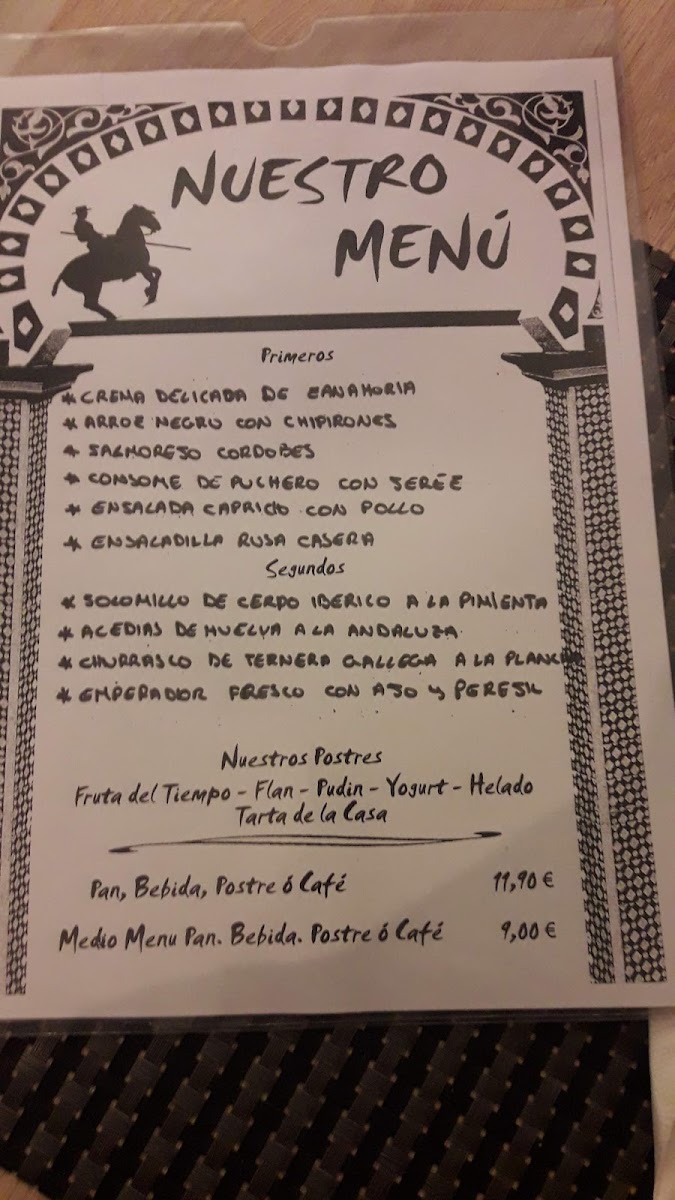 NUESTRO
MENÚ
Primeros
* CREMA DELICADA DE ZANAHORIA
* ARROZ NEGRO CON CHIPIRONES
* SALMOREJO CORDOBES
* CONSOME DE PUCHERO CON JEREZ
* ENSALADA CAPRICHO CON POLLO
* ENSALADILLA RUSA CASERA
Segundos
* SOLOMILLO DE CERDO IBERICO A LA PIMIENTA
* ACEDIAS DE HUELVA A LA ANDALUZA
* CHURRASCO DE TERNERA GALLEGA A LA PLANCHA
* EMPERADOR FRESCO CON AJO y PEREJIL
Nuestros Postres
Fruta del Tiempo - Flan - Pudin - Yogurt - Helado
Tarta de la Casa
Pan, Bebida, Postre ó Café 11,90 €
Medio Menu Pan. Bebida. Postre ó Café 9,00 €